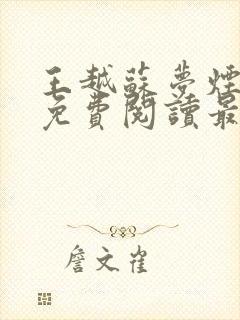 王越蘇夢煙
免費閱讀最
詹文雀